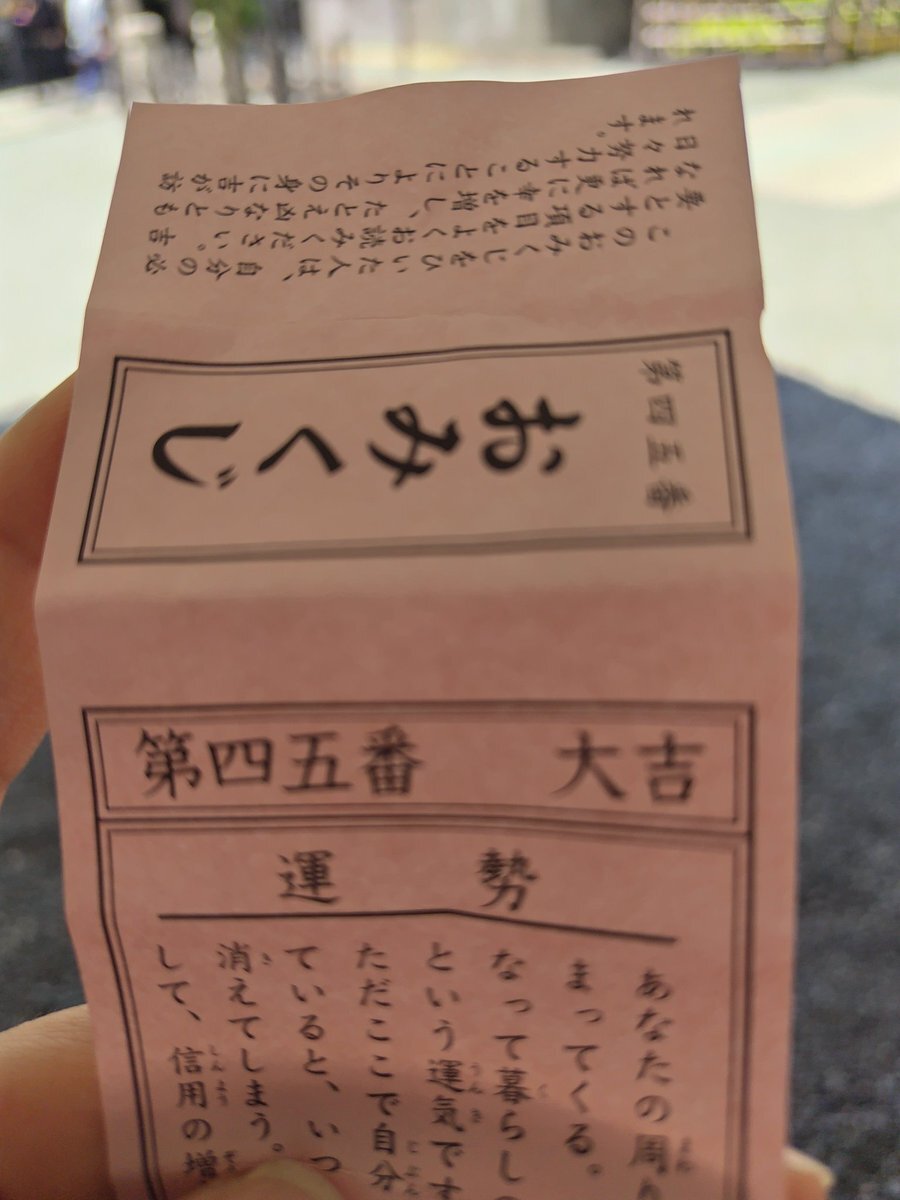 このおみくじをひいた人は、自分の必
要とする項目をよくお読みください。吉
なれば更に幸を増し、たとえ凶なりとも
日々努力することによりその身に吉が訪
れます。
第四五番
おみくじ
第四五番 大吉
運勢
あなたの周
まってくる。
なって暮らしの
という運気です
ただここで自分
ていると、いつ
消えてしまう。
して、信用の増